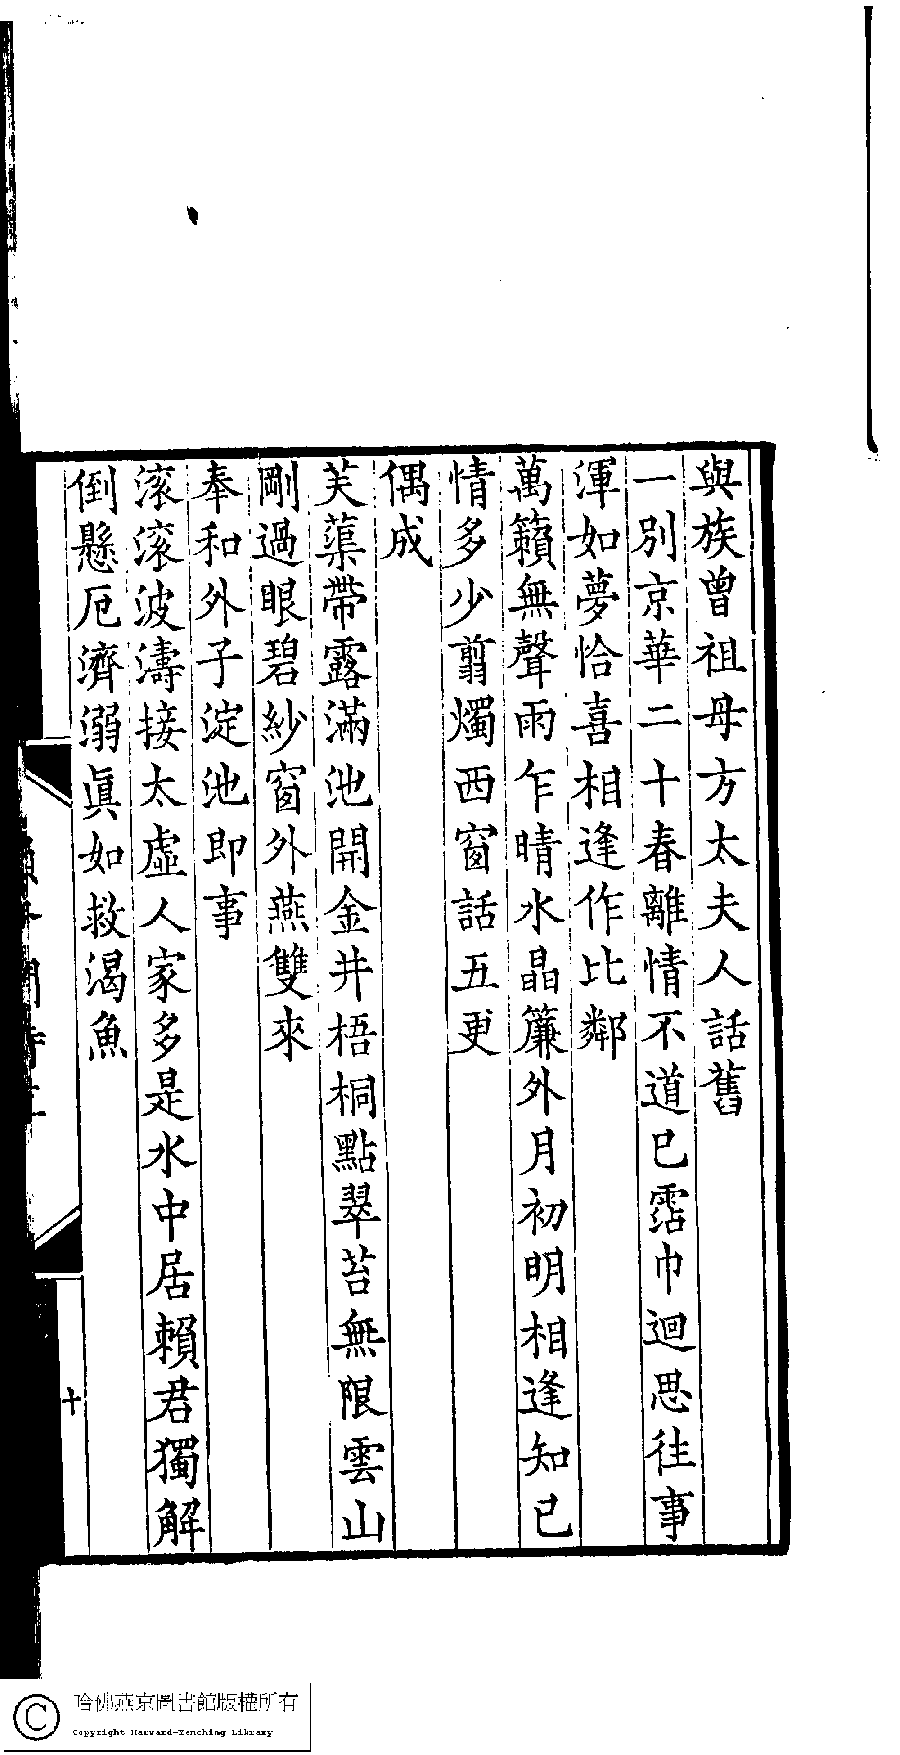 與族曾祖母方太夫人話舊
一別京華二十春離情不道已霑巾迴思往事
渾如夢恰喜相逢作比鄰
萬籟無聲雨乍晴水晶簾外月初明相逢知已
情多少翦燭西窗話五更
偶成
芙蕖帶露滿池開金井梧桐點翠苔無限雲山
剛過眼碧紗窗外燕雙來
奉和外子淀池即事
滾滾波濤接太虛人家多是水中居賴君獨解
倒懸厄濟溺眞如救渴魚
十
哈佛燕京圖書館版權所有
Copyright Harvard-Yenching Library